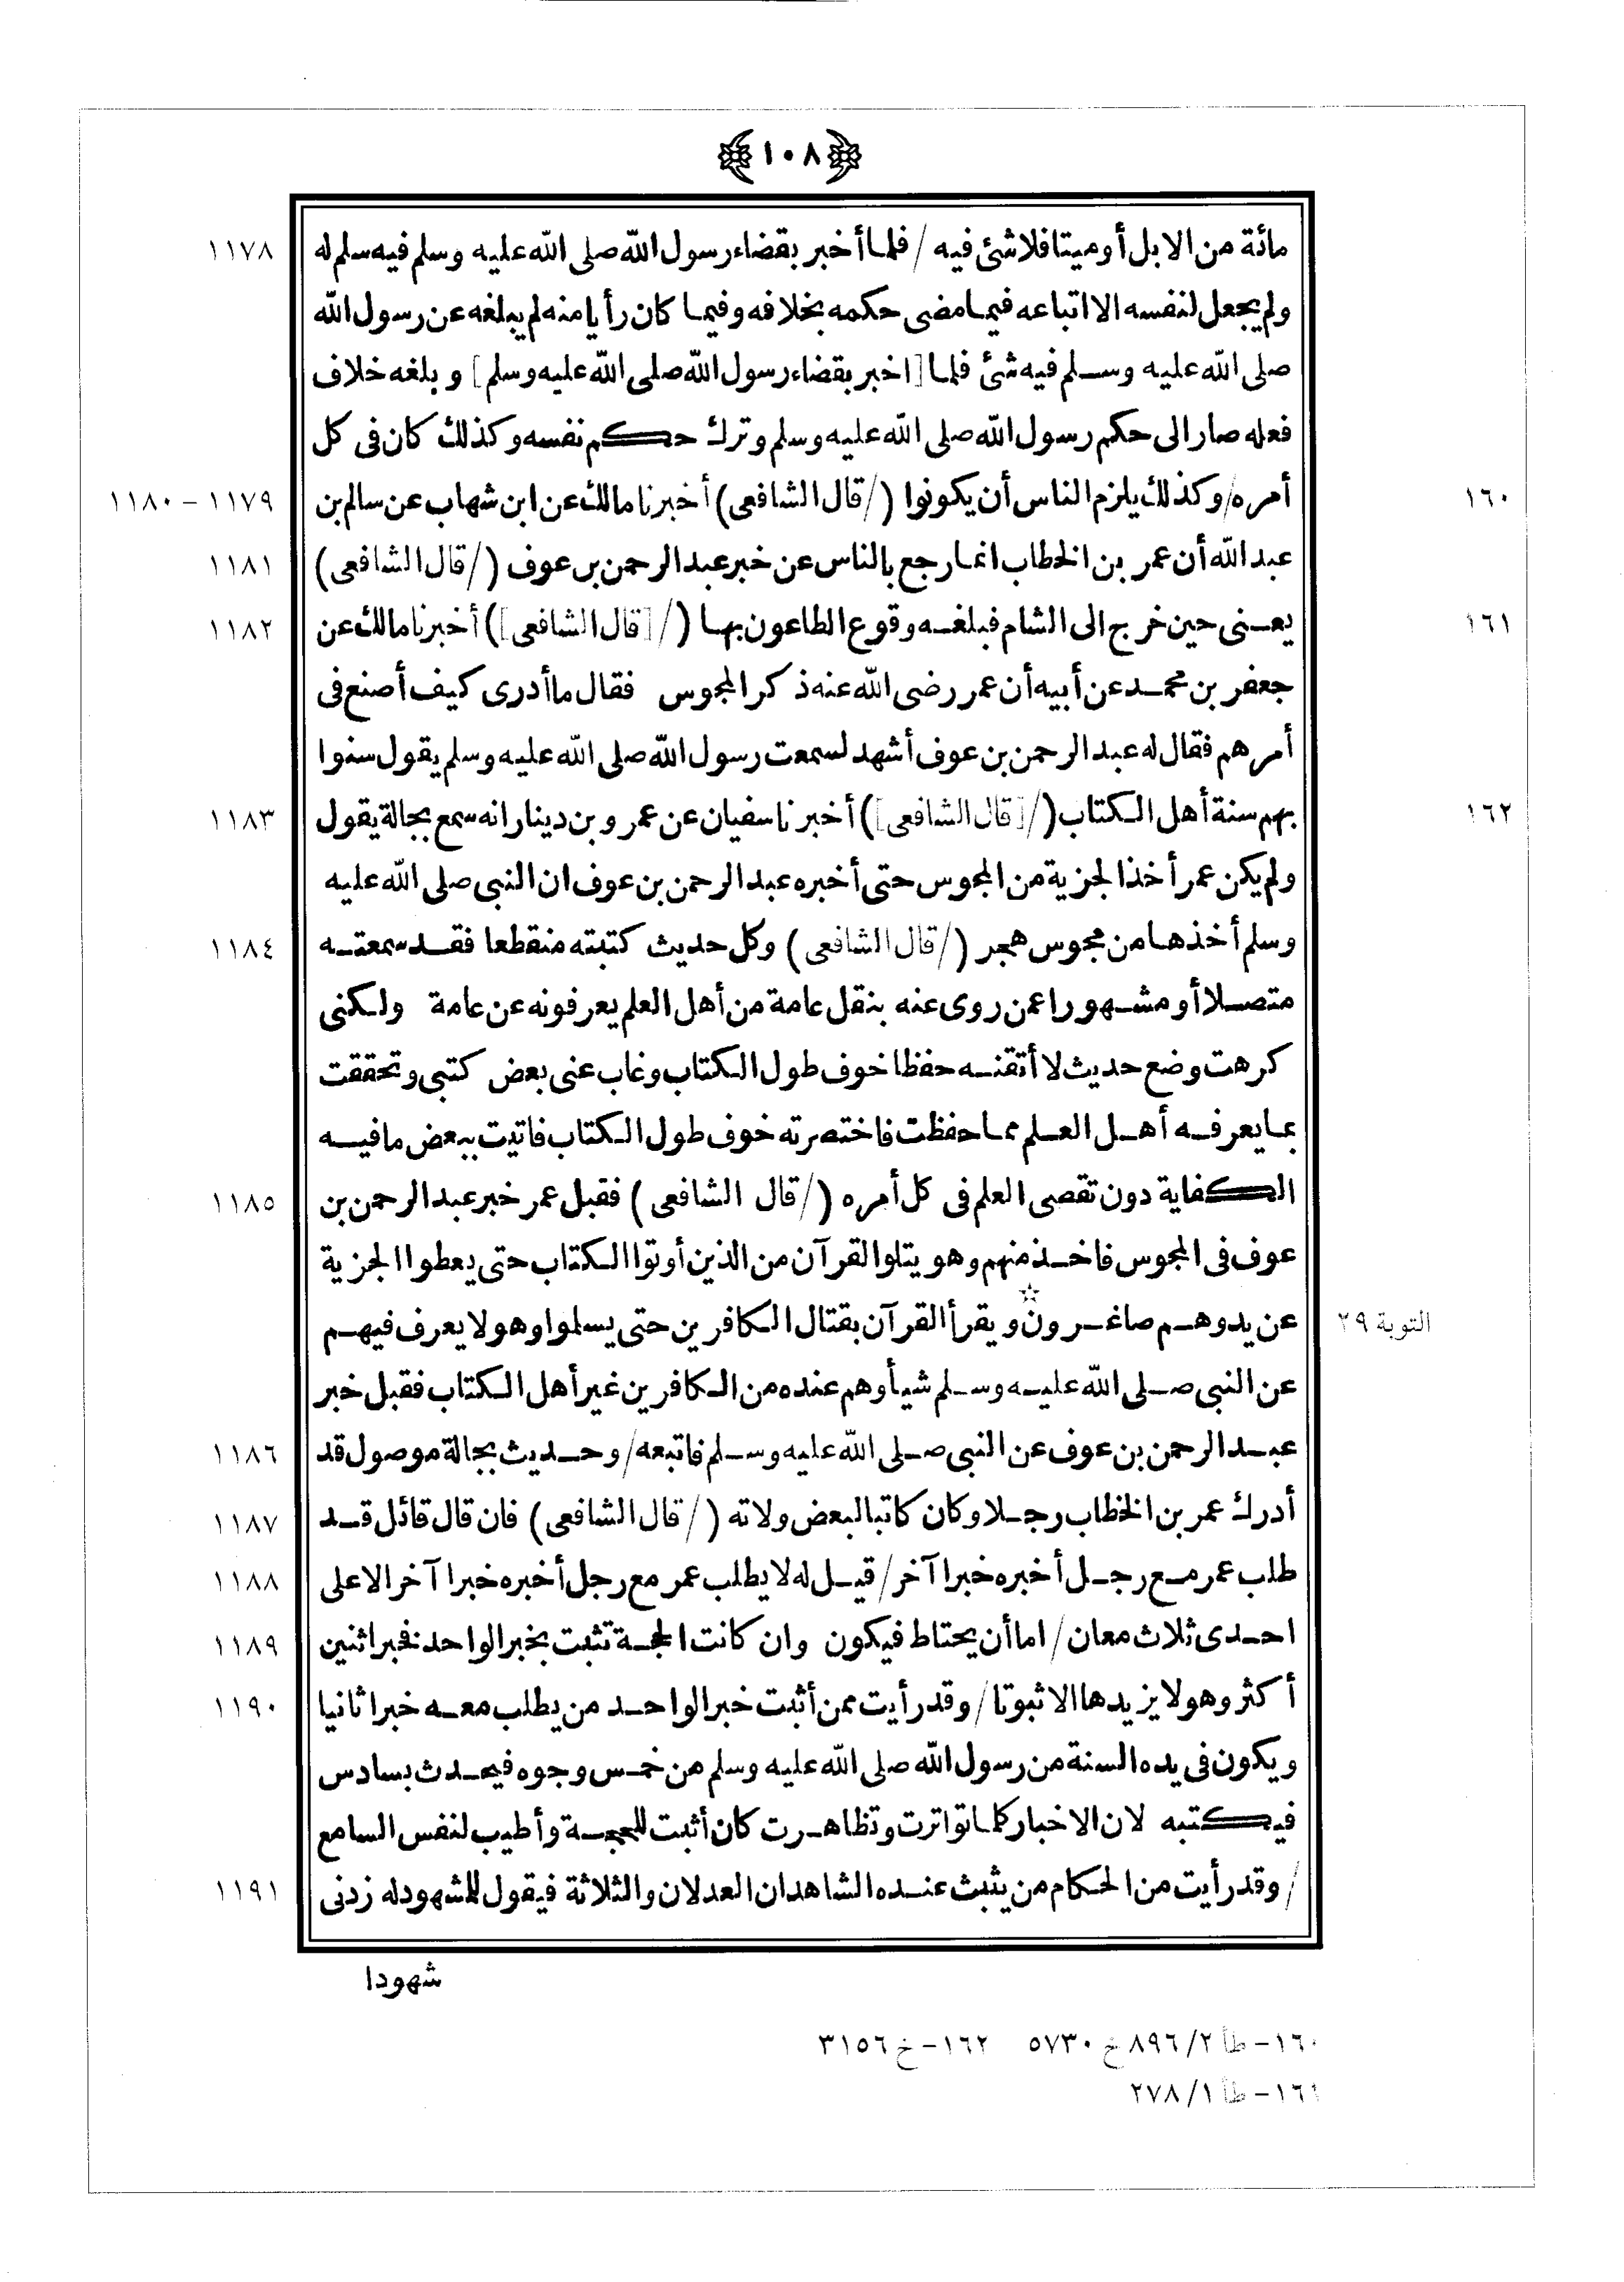 ١٠٨
١١٧٨ مائة من الابل أو ميتا فلا شئ فيه / فلما أخبر بقضاء رسول الله صلى الله عليه وسلم فيه سلم له
ولم يجعل لنفسه الا اتباعه فيما مضى حكمه بخلافه وفيما كان رأيا منه لم يبلغه عن رسول الله
صلى الله عليه وسلم فيه شئ فلما [اخبر بقضاء رسول الله صلى الله عليه وسلم] وبلغه خلاف
فعله صار الى حكم رسول الله صلى الله عليه وسلم وترك حكم نفسه وكذلك كان فى كل
١٦٠ أمره/ وكذلك يلزم الناس أن يكونوا (/ قال الشافعى) أخبرنا مالك عن ابن شهاب عن سالم بن ١١٧٩ – ١١٨٠
عبد الله أن عمر بن الخطاب انما رجع بالناس عن خبر عبد الرحمن بن عوف (/ قال الشافعى) ١١٨١
١٦١ يعنى حين خرج الى الشام فبلغه وقوع الطاعون بها (/ [قال الشافعى]) أخبرنا مالك عن ١١٨٢
جعفر بن محمد عن أبيه أن عمر رضى الله عنه ذكر المجوس فقال ما أدرى كيف أصنع فى
أمرهم فقال له عبد الرحمن بن عوف أشهد لسمعت رسول الله صلى الله عليه وسلم يقول سنوا
١٦٢ بهم سنة أهل الكتاب (/ [قال الشافعى]) أخبرنا سفيان عن عمرو بن دينار انه سمع بجالة يقول ١١٨٣
ولم يكن عمر أخذ الجزية من المجوس حتى أخبره عبد الرحمن بن عوف ان النبى صلى الله عليه
وسلم أخذها من مجوس هجر (/ قال الشافعى) وكل حديث كتبته منقطعا فقد سمعته ١١٨٤
متصلا أو مشهورا عمن روى عنه بنقل عامة من أهل العلم يعرفونه عن عامة ولكنى
كرهت وضع حديث لا أتقنه حفظا خوف طول الكتاب وغاب عنى بعض كتبى وتحققت
بما يعرفه أهل العلم مما حفظت فاختصرته خوف طول الكتاب فاتيت ببعض ما فيه
الكفاية دون تقصى العلم فى كل أمره (/ قال الشافعى) فقبل عمر خبر عبد الرحمن بن ١١٨٥
عوف فى المجوس فاخذ منهم وهو يتلو القرآن من الذين أوتوا الكتاب حتى يعطوا الجزية
التوبة ٢٩ عن يد وهم صاغرون☆ ويقرأ القرآن بقتال الكافرين حتى يسلموا وهو لا يعرف فيهم
عن النبى صلى الله عليه وسلم شيأ وهم عنده من الكافرين غير أهل الكتاب فقبل خبر
عبد الرحمن بن عوف عن النبى صلى الله عليه وسلم فاتبعه/ وحديث بجالة موصول قد ١١٨٦
أدرك عمر بن الخطاب رجلا وكان كاتبا لبعض ولاته (/ قال الشافعى) فان قال قائل قد ١١٨٧
طلب عمر مع رجل أخبره خبرا آخر/ قيل له لا يطلب عمر مع رجل أخبره خبرا آخر الا على ١١٨٨
احدى ثلاث معان/ اما أن يحتاط فيكون وان كانت الحجة تثبت بخبر الواحد فخبر اثنين ١١٨٩
أكثر وهو لا يزيدها الا ثبوتا/ وقد رأيت ممن أثبت خبر الواحد من يطلب معه خبرا ثانيا ١١٩٠
ويكون فى يده السنة من رسول الله صلى الله عليه وسلم من خمس وجوه فيحدث بسادس
فيكتبه لان الاخبار كلما تواترت وتظاهرت كان أثبت للحجة وأطيب لنفس السامع
/ وقد رأيت من الحكام من يثبت عنده الشاهدان العدلان والثلاثة فيقول للمشهود له زدنى ١١٩١
شهودا
١٦٠ – طأ ٨٩٦/٢ خ ٥٧٣٠ ١٦٢ – خ ٣١٥٦
١٦١ – طأ ٢٧٨/١